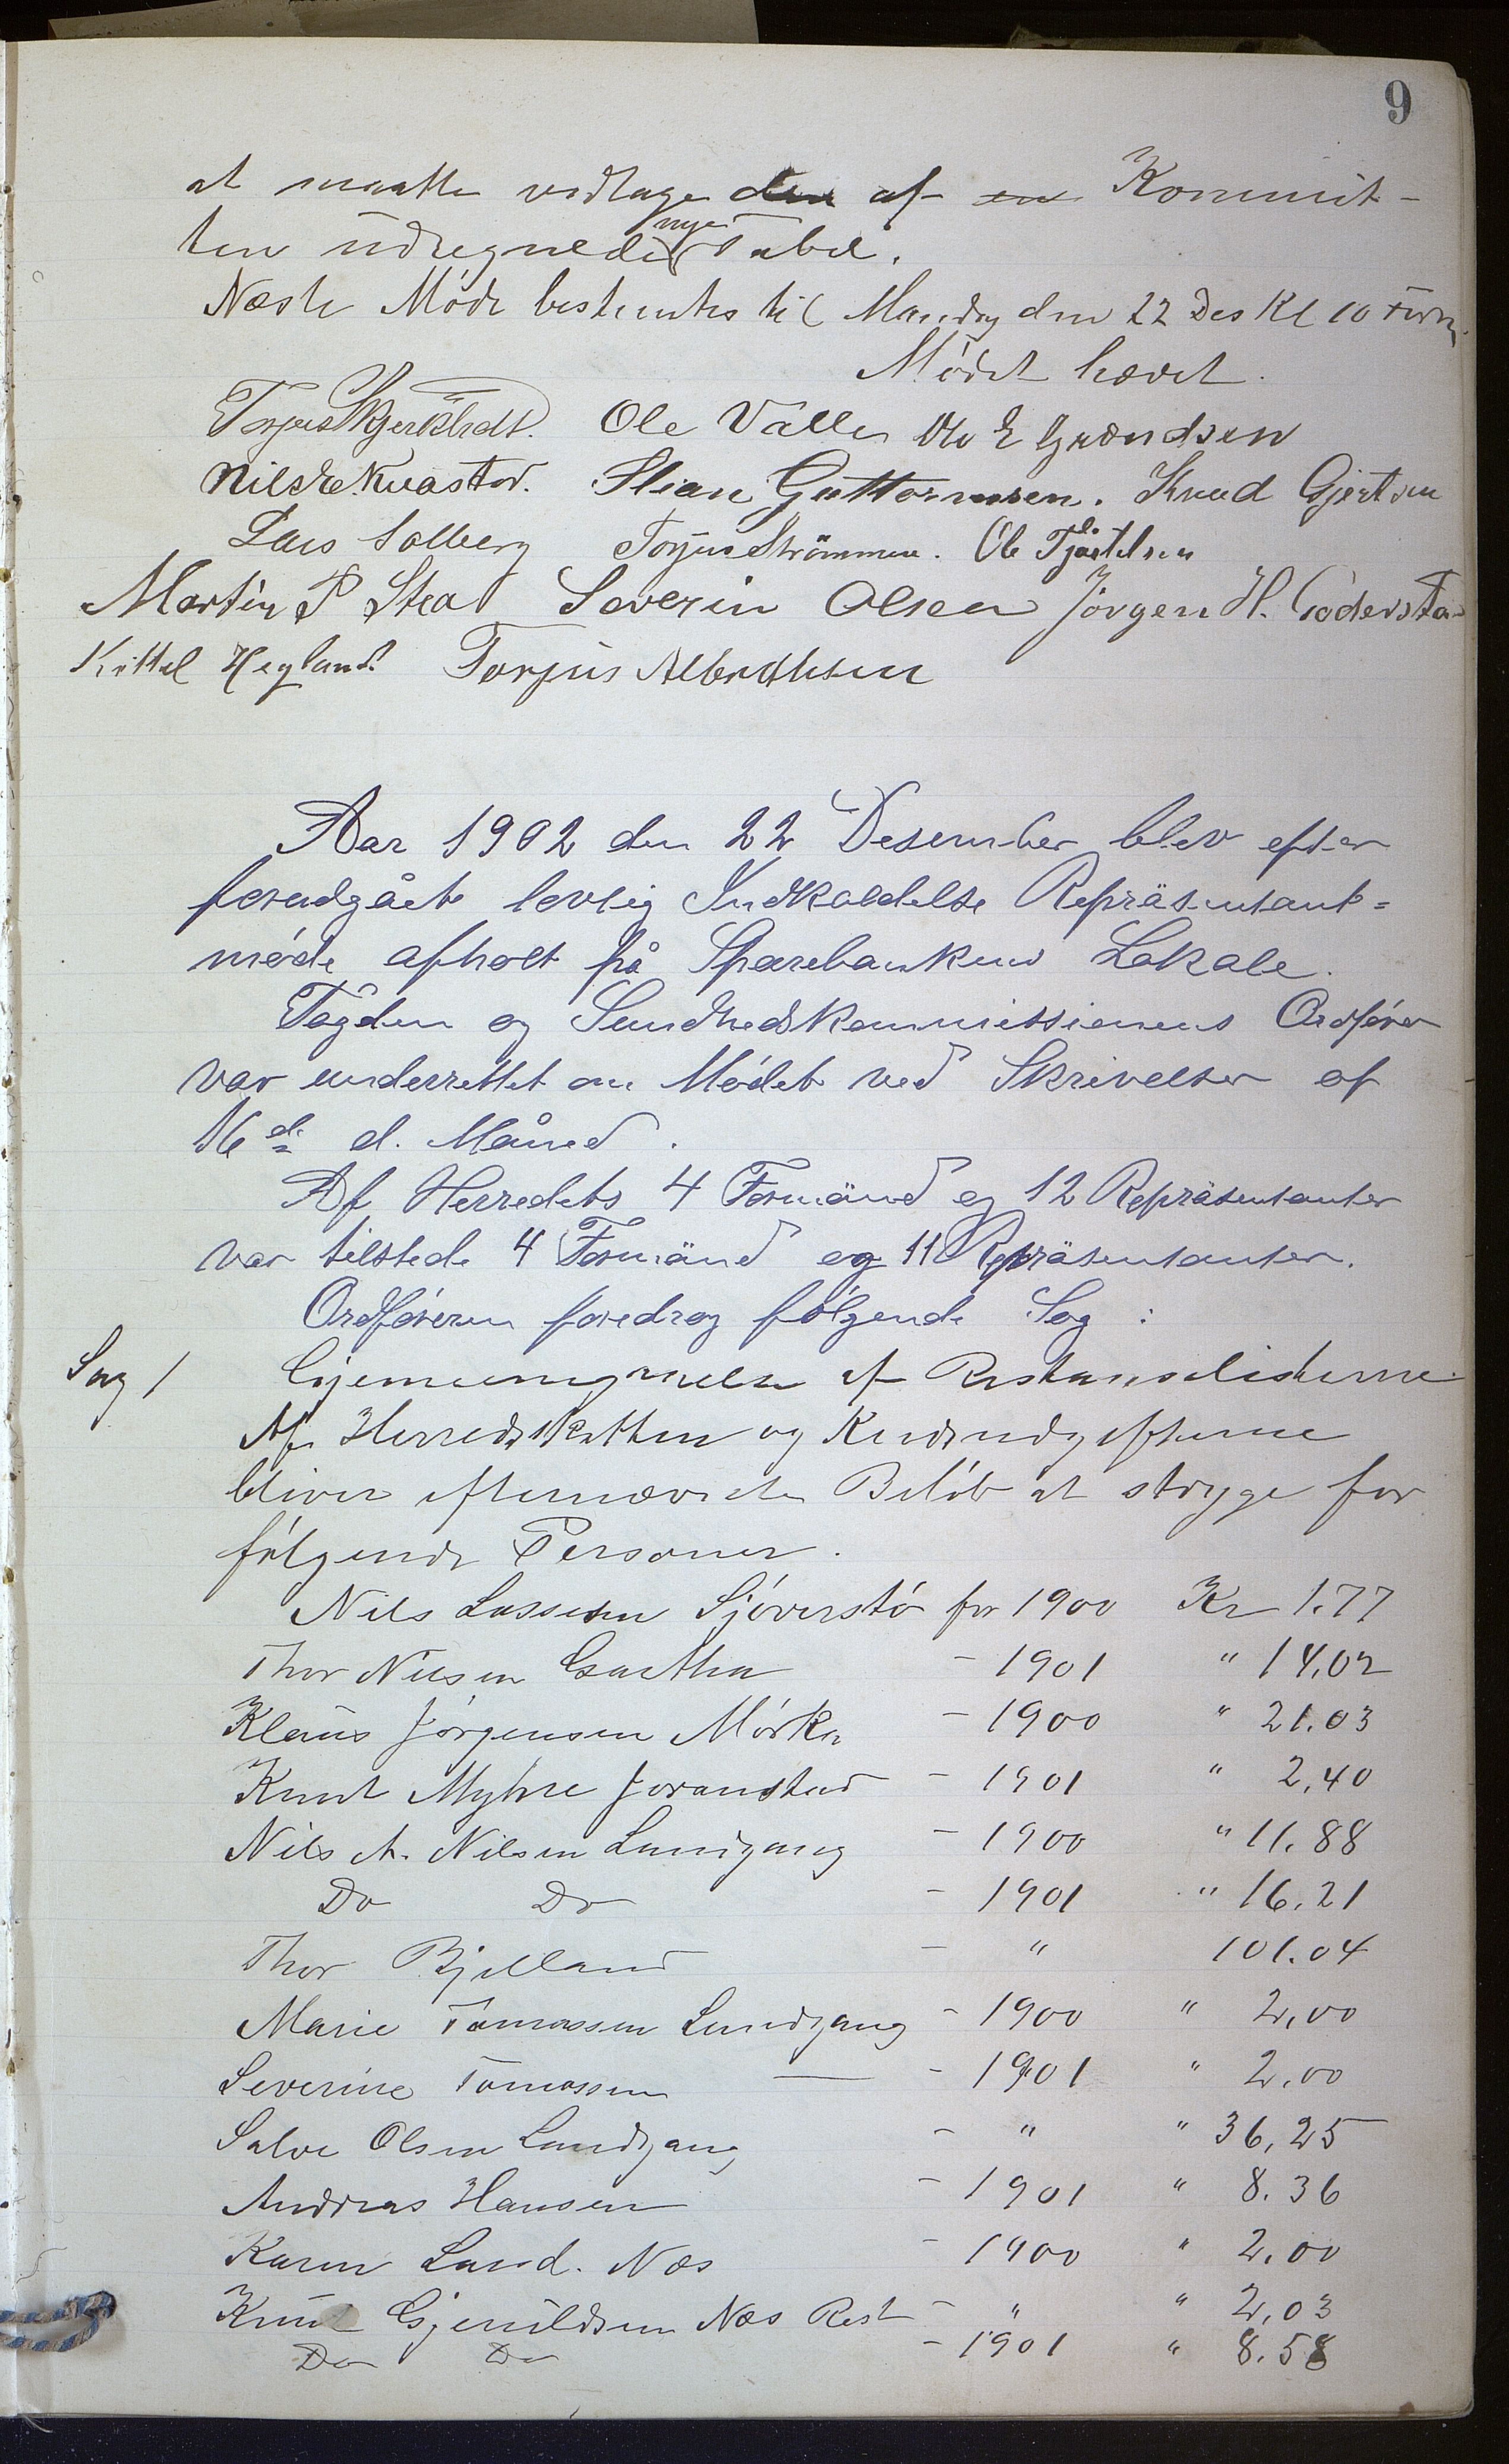 9
at maatte vedtage den af en Kommit-
teen udregnede nye Tabel.
Næste Møde bestemtes til Mandag den 22 Des Kl 10 Form.
Mødet hævet.
Ole Valle Ole E Gundersen
Stian Guttormsen. Knud Gjertsen
Lars Solberg Torjus Strømmen. Ole Tjøstelsen
Martin P Stea Severin Olsen Jørgen H. Goderstad
Kittel Hegland Torjus Albrethsen
Aar 1902 den 22 Desember blev efter
forudgået lovlig Indkaldelse Repräsentant=
møde afholt på Sparebankens Lokale.
Fogden og Sundhedskommissionens Ordfører
var underrettet om Mødet ved Skrivelser af
16de d. Måned.
Af Herredets 4 Formänd og 12 Repräsentanter
var tilstede 4 Formänd og 11 Repräsentanter.
Ordføreren foredrog følgende Sag:
Sag 1 Gjennemgaaelse af Restanselisterne
Af Herredsskatten og Hundeafgifterne
bliver efternævnte Beløb at stryge for
følgende Personer.
Nils Lassesen Sjøverstø for 1900 Kr 1.77
Thor Nilsen Gaathe - 1901 " 14,02
Klaus Jørgensen Mørke - 1900 " 21.03
Knut Myhre Joranstad - 1901 " 2,40
Nils A. Nilsen Lundgang - 1900 " 11.88
Do Do - 1901 " 16.21
Thor Bjelland - " 101.04
Marie Tomassen Lundgang - 1900 " 2,00
Severine Tomassen — - 1901 " 2.00
Salve Olsen Lundgang - " " 36,25
Andreas Hansen - 1901 " 8.36
Karen Lund. Næs - 1900 " 2.00
Knut Gjerulldsen Næs Rest - " " 2,03
Do Do - 1901 " 8.58